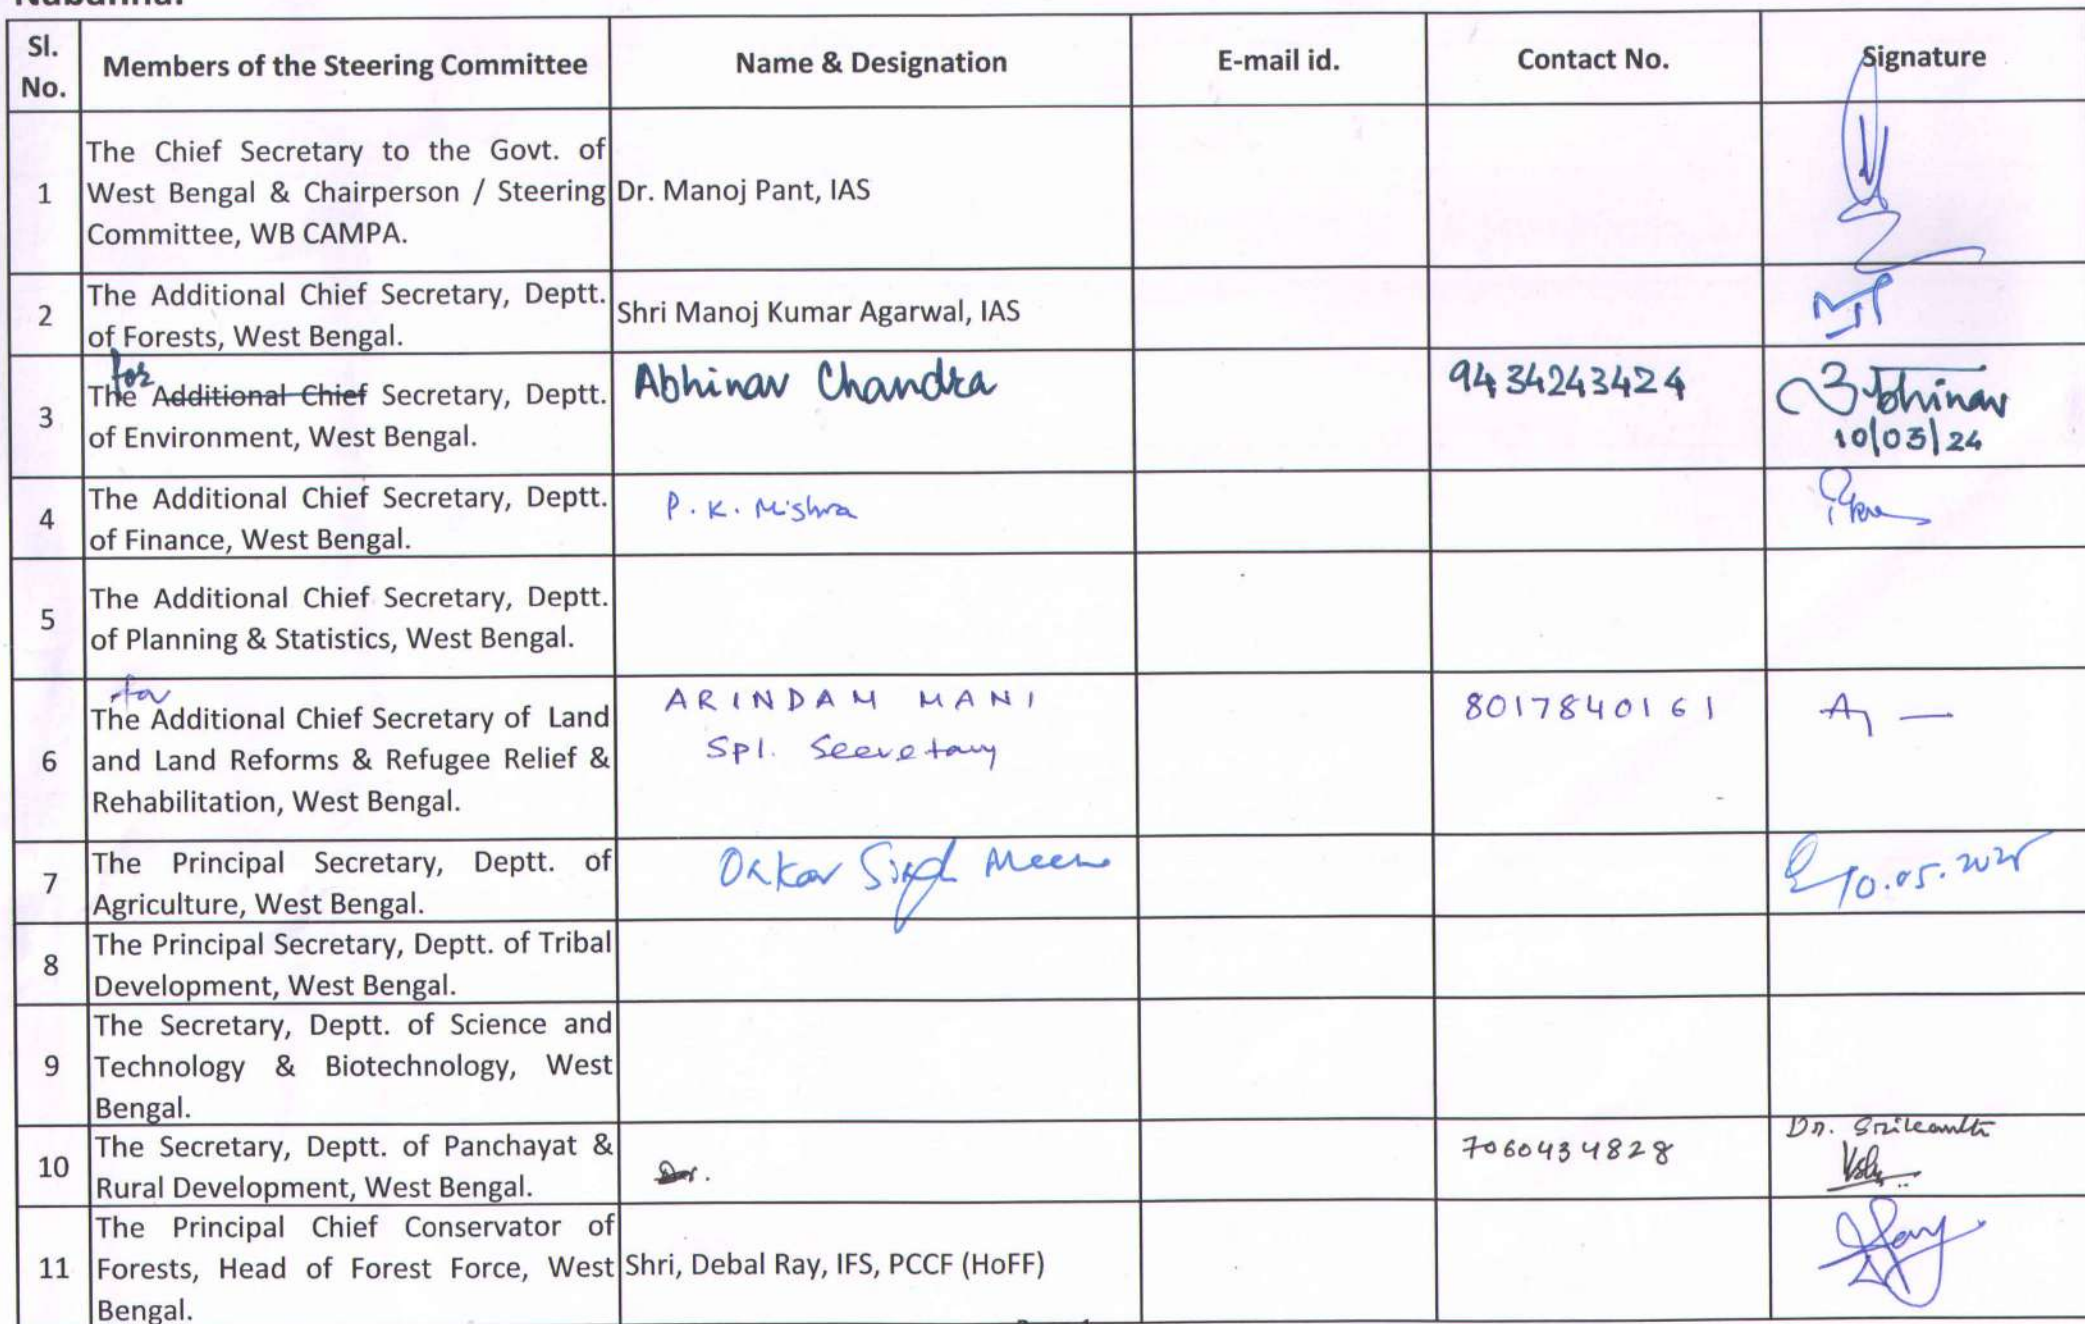 Sl. No.
Members of the Steering Committee
Name & Designation
E-mail id.
Contact No.
Signature
1
The Chief Secretary to the Govt. of
West Bengal & Chairperson / Steering
Committee, WB CAMPA.
Dr. Manoj Pant, IAS
2
The Additional Chief Secretary, Deptt.
of Forests, West Bengal.
Shri Manoj Kumar Agarwal, IAS
3
for
The Additional Chief Secretary, Deptt.
of Environment, West Bengal.
Abhinav Chandra
9434243424
Abhinav
10/05/24
4
The Additional Chief Secretary, Deptt.
of Finance, West Bengal.
P. K. Mishra
5
The Additional Chief Secretary, Deptt.
of Planning & Statistics, West Bengal.
6
for
The Additional Chief Secretary of Land
and Land Reforms & Refugee Relief &
Rehabilitation, West Bengal.
ARINDAM MANI
Spl. Secretary
8017840161
7
The Principal Secretary, Deptt. of
Agriculture, West Bengal.
Onkar Singh Meena
10.05.2025
8
The Principal Secretary, Deptt. of Tribal
Development, West Bengal.
9
The Secretary, Deptt. of Science and
Technology & Biotechnology, West
Bengal.
10
The Secretary, Deptt. of Panchayat &
Rural Development, West Bengal.
7060434828
Dr. Srikanth
11
The Principal Chief Conservator of
Forests, Head of Forest Force, West
Bengal.
Shri, Debal Ray, IFS, PCCF (HoFF)